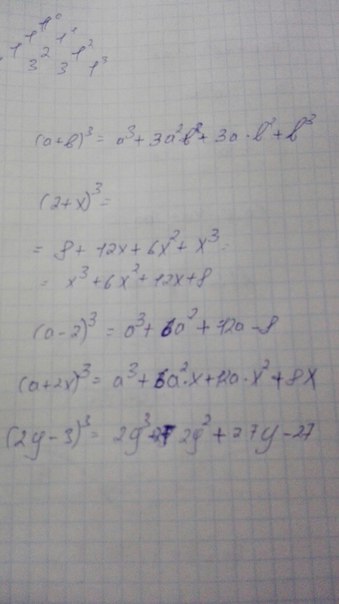 1⁰
1 1¹
1 2 1²
1 3 3 1³
(a+b)³ = a³ + 3a²b + 3a·b² + b³
(2+x)³ =
= 8 + 12x + 6x² + x³ =
= x³ + 6x² + 12x + 8
(a-2)³ = a³ + 6a² + 12a - 8
(a+2x)³ = a³ + 6a²·x + 12a·x² + 8x
(2y-3)³ = 2y³ 2y² + 27y - 27